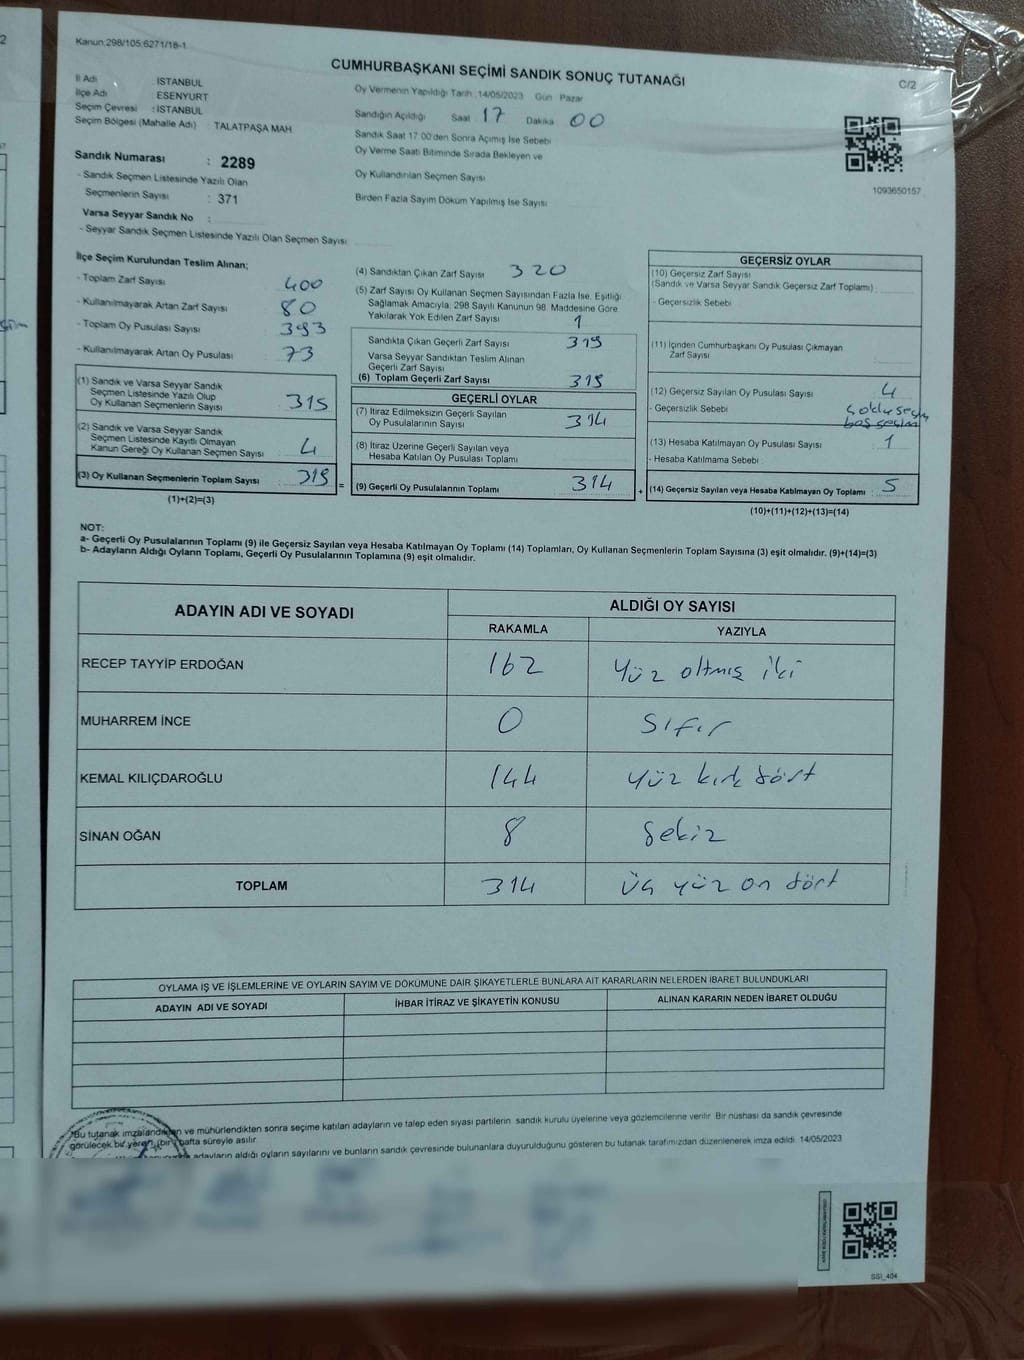 Kanun;298/105;6271/18-1
CUMHURBAŞKANI SEÇİMİ SANDIK SONUÇ TUTANAĞI
C/2
İl Adı İSTANBUL
İlçe Adı ESENYURT
Seçim Çevresi : İSTANBUL
Seçim Bölgesi (Mahalle Adı) : TALATPAŞA MAH
Sandık Numarası : 2289
- Sandık Seçmen Listesinde Yazılı Olan
Seçmenlerin Sayısı : 371
Varsa Seyyar Sandık No :
- Seyyar Sandık Seçmen Listesinde Yazılı Olan Seçmen Sayısı
Oy Vermenin Yapıldığı Tarih :14/05/2023 Gün Pazar
Sandığın Açıldığı Saat 17 Dakika 00
Sandık Saat 17:00'den Sonra Açımış İse Sebebi
Oy Verme Saati Bitiminde Sırada Bekleyen ve
Oy Kullandırılan Seçmen Sayısı
Birden Fazla Sayım Döküm Yapılmış İse Sayısı
1093650157
İlçe Seçim Kurulundan Teslim Alınan;
- Toplam Zarf Sayısı 400
- Kullanılmayarak Artan Zarf Sayısı 80
- Toplam Oy Pusulası Sayısı 393
- Kullanılmayarak Artan Oy Pusulası 73
(1) Sandık ve Varsa Seyyar Sandık
Seçmen Listesinde Yazılı Olup
Oy Kullanan Seçmenlerin Sayısı 315
(2) Sandık ve Varsa Seyyar Sandık
Seçmen Listesinde Kayıtlı Olmayan
Kanun Gereği Oy Kullanan Seçmen Sayısı 4
(3) Oy Kullanan Seçmenlerin Toplam Sayısı 319 =
(1)+(2)=(3)
(4) Sandıktan Çıkan Zarf Sayısı 320
(5) Zarf Sayısı Oy Kullanan Seçmen Sayısından Fazla İse, Eşitliği
Sağlamak Amacıyla, 298 Sayılı Kanunun 98. Maddesine Göre
Yakılarak Yok Edilen Zarf Sayısı 1
Sandıkta Çıkan Geçerli Zarf Sayısı 319
Varsa Seyyar Sandıktan Teslim Alınan
Geçerli Zarf Sayısı
(6) Toplam Geçerli Zarf Sayısı 319
GEÇERLİ OYLAR
(7) İtiraz Edilmeksizin Geçerli Sayılan
Oy Pusulalarının Sayısı 314
(8) İtiraz Üzerine Geçerli Sayılan veya
Hesaba Katılan Oy Pusulası Toplamı
(9) Geçerli Oy Pusulalarının Toplamı 314 +
GEÇERSİZ OYLAR
(10) Geçersiz Zarf Sayısı
(Sandık ve Varsa Seyyar Sandık Geçersiz Zarf Toplamı) :
- Geçersizlik Sebebi
(11) İçinden Cumhurbaşkanı Oy Pusulası Çıkmayan
Zarf Sayısı
(12) Geçersiz Sayılan Oy Pusulası Sayısı 4
- Geçersizlik Sebebi
boş seçim
(13) Hesaba Katılmayan Oy Pusulası Sayısı 1
- Hesaba Katılmama Sebebi :
(14) Geçersiz Sayılan veya Hesaba Katılmayan Oy Toplamı : 5
(10)+(11)+(12)+(13)=(14)
NOT:
a- Geçerli Oy Pusulalarının Toplamı (9) ile Geçersiz Sayılan veya Hesaba Katılmayan Oy Toplamı (14) Toplamları, Oy Kullanan Seçmenlerin Toplam Sayısına (3) eşit olmalıdır. (9)+(14)=(3)
b- Adayların Aldığı Oyların Toplamı, Geçerli Oy Pusulalarının Toplamına (9) eşit olmalıdır.
ADAYIN ADI VE SOYADI ALDIĞI OY SAYISI
RAKAMLA YAZIYLA
RECEP TAYYİP ERDOĞAN 162 yüz altmış iki
MUHARREM İNCE 0 sıfır
KEMAL KILIÇDAROĞLU 144 yüz kırk dört
SİNAN OĞAN 8 sekiz
TOPLAM 314 üç yüz on dört
OYLAMA İŞ VE İŞLEMLERİNE VE OYLARIN SAYIM VE DÖKÜMÜNE DAİR ŞİKAYETLERLE BUNLARA AİT KARARLARIN NELERDEN İBARET BULUNDUKLARI
ADAYIN ADI VE SOYADI İHBAR İTİRAZ VE ŞİKAYETİN KONUSU ALINAN KARARIN NEDEN İBARET OLDUĞU
*Bu tutanak imzalandıktan ve mühürlendikten sonra seçime katılan adayların ve talep eden siyasi partilerin sandık kurulu üyelerine veya gözlemcilerine verilir. Bir nüshası da sandık çevresinde
görülecek bir yere (bir) hafta süreyle asılır.
adayların aldığı oyların sayılarını ve bunların sandık çevresinde bulunanlara duyurulduğunu gösteren bu tutanak tarafımızdan düzenlenerek imza edildi. 14/05/2023
SSI_404